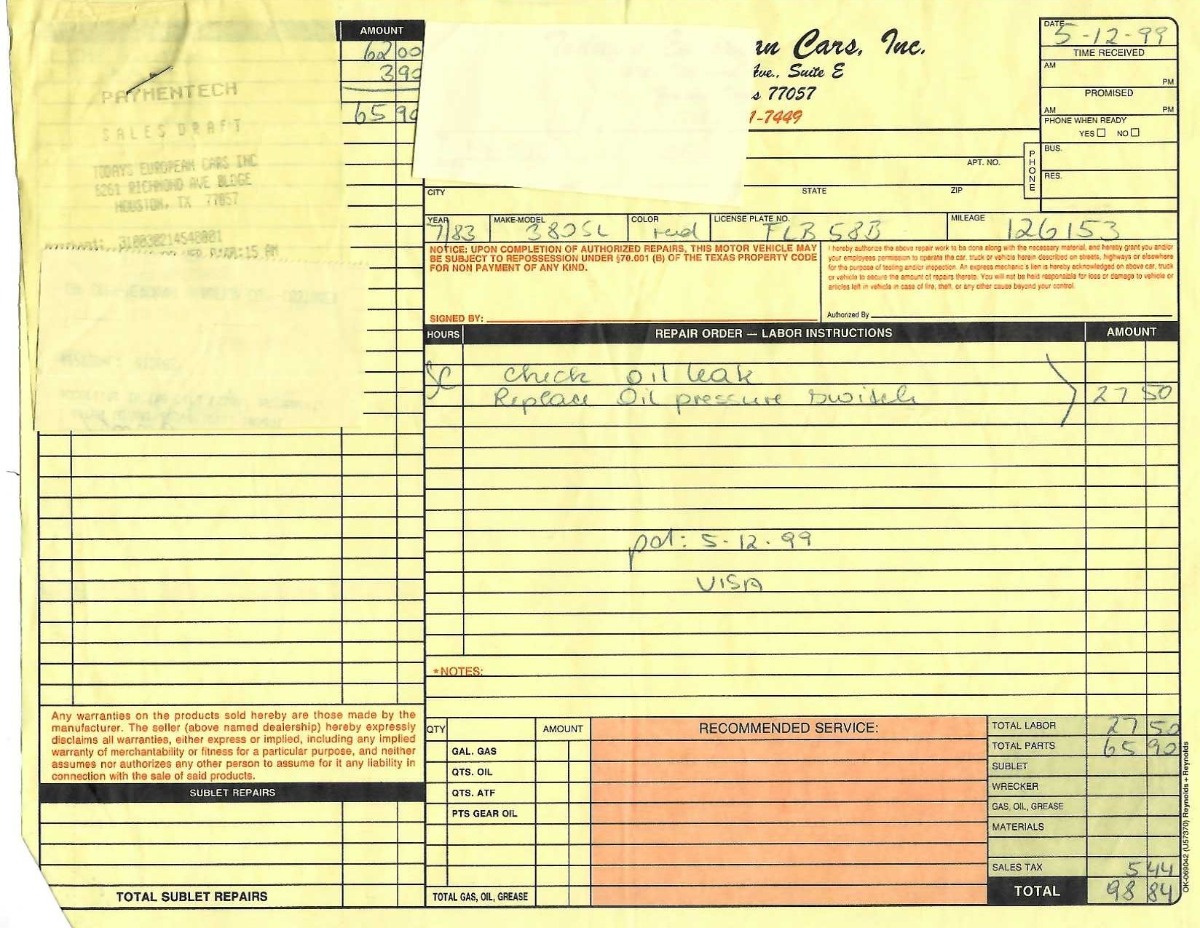 AMOUNT
62 00
3 90
65 90
PAYMENTECH
SALES DRAFT
TODAYS EUROPEAN CARS INC
6261 RICHMOND AVE BLDGE
HOUSTON, TX 77057
310030214540001
an Cars, Inc.
Ave., Suite E
s 77057
1-7449
DATE 5-12-99
TIME RECEIVED
AM PM
PROMISED
AM PM
PHONE WHEN READY
YES NO
PHONE
BUS.
RES.
APT. NO.
CITY STATE ZIP
YEAR MAKE-MODEL COLOR LICENSE PLATE NO. MILEAGE
7/83 380SL red FLB 58B 126153
NOTICE: UPON COMPLETION OF AUTHORIZED REPAIRS, THIS MOTOR VEHICLE MAY
BE SUBJECT TO REPOSSESSION UNDER §70.001 (B) OF THE TEXAS PROPERTY CODE
FOR NON PAYMENT OF ANY KIND.
SIGNED BY:
I hereby authorize the above repair work to be done along with the necessary material, and hereby grant you and/or
your employees permission to operate the car, truck or vehicle herein described on streets, highways or elsewhere
for the purpose of testing and/or inspection. An express mechanic's lien is hereby acknowledged on above car, truck
or vehicle to secure the amount of repairs thereto. You will not be held responsible for loss or damage to vehicle or
articles left in vehicle in case of fire, theft, or any other cause beyond your control.
Authorized By
HOURS REPAIR ORDER — LABOR INSTRUCTIONS AMOUNT
SC check oil leak
Replace Oil pressure switch 27 50
pd: 5-12-99
VISA
*NOTES:
Any warranties on the products sold hereby are those made by the
manufacturer. The seller (above named dealership) hereby expressly
disclaims all warranties, either express or implied, including any implied
warranty of merchantability or fitness for a particular purpose, and neither
assumes nor authorizes any other person to assume for it any liability in
connection with the sale of said products.
SUBLET REPAIRS
TOTAL SUBLET REPAIRS
QTY AMOUNT
GAL. GAS
QTS. OIL
QTS. ATF
PTS GEAR OIL
TOTAL GAS, OIL, GREASE
RECOMMENDED SERVICE:
TOTAL LABOR 27 50
TOTAL PARTS 65 90
SUBLET
WRECKER
GAS, OIL, GREASE
MATERIALS
SALES TAX 5 44
TOTAL 98 84
OK-069042 (U57370) Reynolds + Reynolds